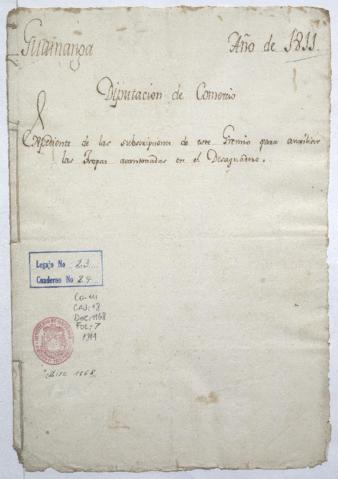 Guamanga
Año de 1811
Diputacion de Comercio
Expediente de las subscripciones de este Gremio para auxiliar
las Tropas acantonadas en el Desaguadero.
Legajo No 23
Cuaderno No 24
CO-111
CAJ: 18
Doc: 1168
FOL: 7
1811
1168